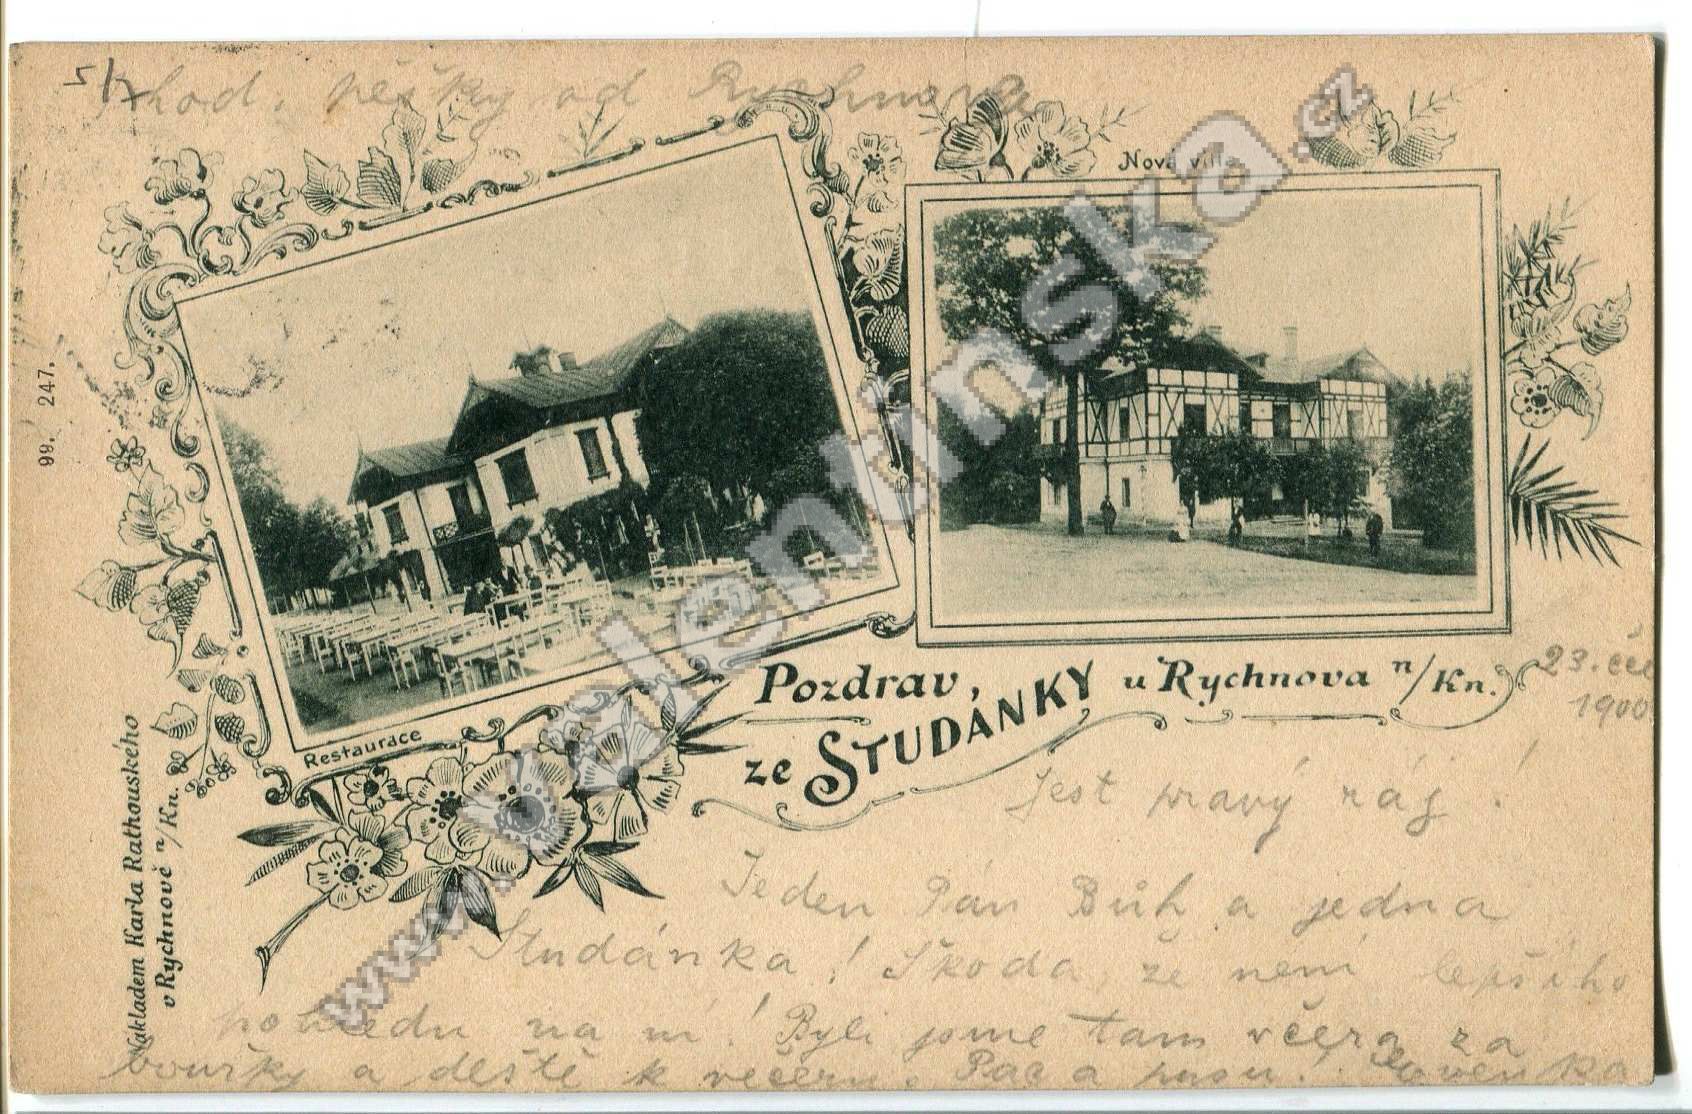 hod. pěšky od Rychnova
Nová villa
Restaurace
99. 247.
Nákladem Karla Rathouského
v Rychnově n/Kn.
Pozdrav,
ze STUDÁNKY u Rychnova n/Kn.
23. čer
1900
Jest pravý ráj!
Jeden Pán Bůh a jedna
Studánka! Škoda, že není lepšího
pohledu na ni! Byli jsme tam včera za
bouřky a deště k večeru. Pac a pusu!
www.valentinska.cz